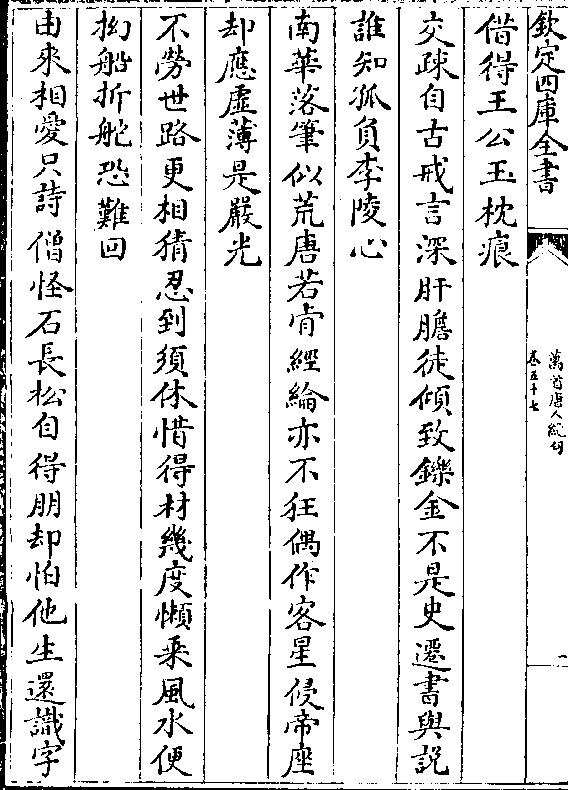 欽定四庫全書
萬首唐人絶句
卷五十七
借得王公玉枕痕
交疎自古戒言深肝膽徒傾致鑠金不是史遷書與説
誰知孤負李陵心
南華落筆似荒唐若肯經綸亦不狂偶作客星侵帝座
却應虚薄是嚴光
不勞世路更相猜忍到須休惜得材幾度懶乘風水便
拗船折舵恐難回
由來相愛只詩僧怪石長松自得朋却怕他生還識字